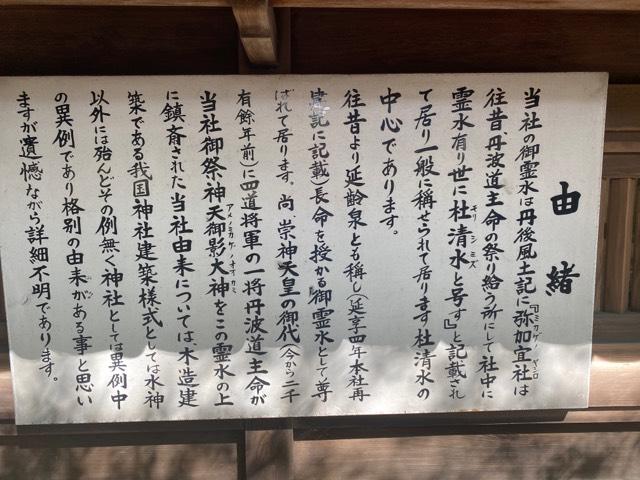 由緒
当社の御霊水は丹後風土記に『弥加宜社は
往昔、丹波道主命の祭り給う所にして社中に
霊水有り世に杜清水と号す』と記載され
て居り一般に称せられて居ります杜清水の
中心であります。
往昔より延齢泉とも称し(延享四年本社再
建記に記載)長命を授かる御霊水として尊
ばれて居ります。尚、崇神天皇の御代(今から二千
有餘年前)に四道将軍の一将丹波道主命が
当社御祭神天御影大神をこの霊水の上
に鎮斎された当社由来については、木造建
築である我国神社建築様式としては水神
以外には殆んどその例無く神社としては異例中
の異例であり格別の由来がある事と思い
ますが遺憾ながら詳細不明であります。